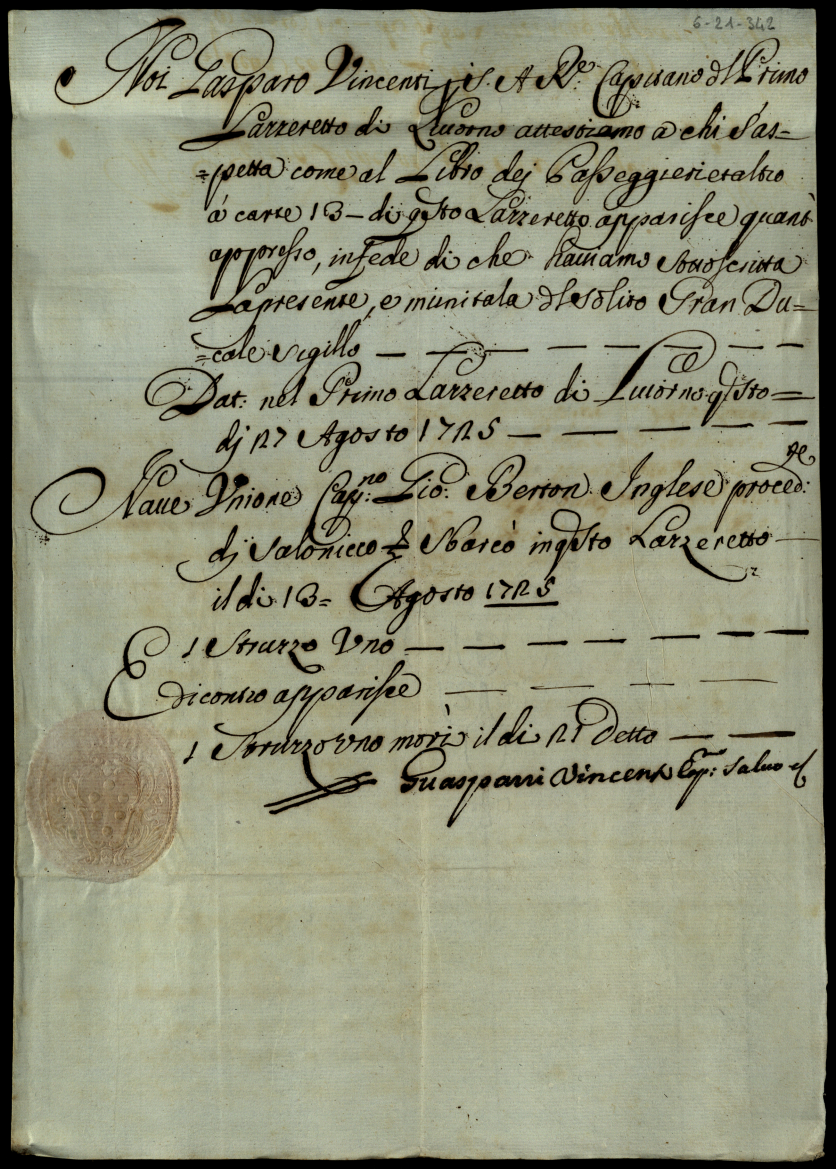 6-21-342
Noi Gasparo Vincenti p. S. A. Re. Capitano dl Primo
Lazzeretto di Livorno attestiamo a chi S'as-
=petta come al Libro dej Passeggieri et altro
à carte 13 - di qsto Lazzeretto apparisce quant
appresso, in fede di che haviamo sottoscritta
La presente, e munitala dl solito Gran Du=
=cale sigillo — — — — — — —
Dat: nel Primo Lazzeretto di Livorno qsto =
dj 27 Agosto 1725 — — — — —
Nave Vnione Cap:no Gio: Berton Inglese proced:te
dj Salonicco Sbarcò in qsto Lazzeretto —
il di 13= Agosto 1725
1 Struzzo Vno — — — — — — —
E di contro apparisce — — — —
1 Struzzo Vno morì il di 21 Detto — —
Guasparri Vincenti Cap: salvo